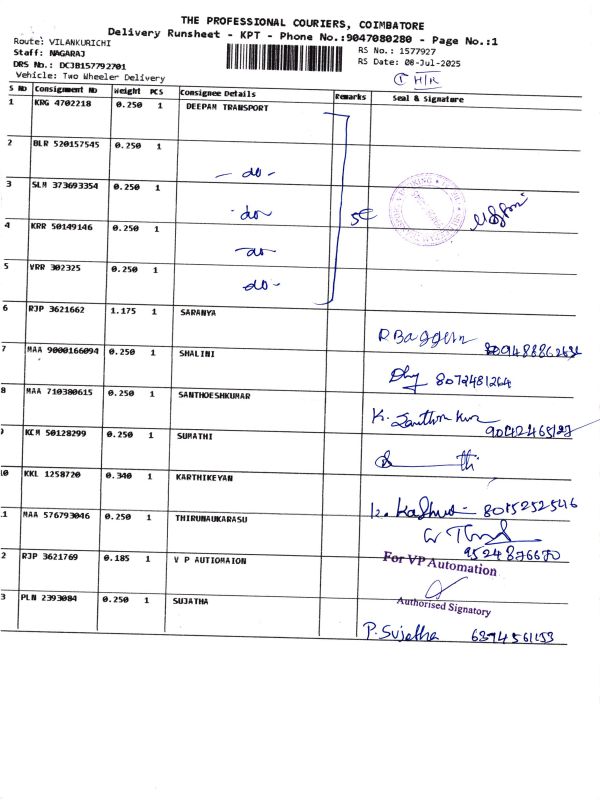 THE PROFESSIONAL COURIERS, COIMBATORE
Delivery Runsheet - KPT - Phone No.:9047080280 - Page No.:1
Route: VILANKURICHI
RS No.: 1577927
Staff: NAGARAJ
RS Date: 08-Jul-2025
DRS No.: DCJB157792701
Vehicle: Two Wheeler Delivery
1 H/R
S No Consignment No Weight PCS Consignee Details Remarks Seal & Signature
1 KRG 4702218 0.250 1 DEEPAM TRANSPORT
2 BLR 520157545 0.250 1
- do -
3 SLM 373693354 0.250 1
- do -
5C
4 KRR 50149146 0.250 1
- do -
5 VRR 302325 0.250 1
- do -
6 RJP 3621662 1.175 1 SARANYA
7 MAA 9000166094 0.250 1 SHALINI
8072481264
8 MAA 710380615 0.250 1 SANTHOESHKUMAR
K.
9 KCM 50128299 0.250 1 SUMATHI
10 KKL 1258720 0.340 1 KARTHIKEYAN
8015252546
11 MAA 576793046 0.250 1 THIRUNAUKARASU
9524876670
2 RJP 3621769 0.185 1 V P AUTIOMAION
For VP Automation
Authorised Signatory
3 PLN 2393084 0.250 1 SUJATHA
P. Sujatha